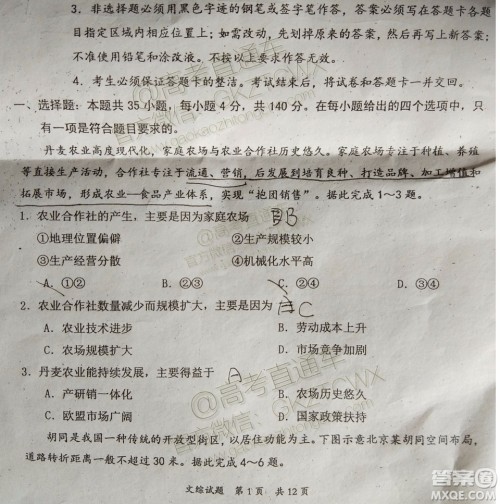 3．非选择题必须用黑色字迹的钢笔或签字笔作答，答案必须写在答题卡各题
目指定区域内相应位置上；如需改动，先划掉原来的答案，然后再写上新答案；
不准使用铅笔和涂改液。不按以上要求作答无效。
4．考生必须保证答题卡的整洁。考试结束后，将试卷和答题卡一并交回。
一、选择题：本题共 35 小题，每小题 4 分，共 140 分。在每小题给出的四个选项中，只
有一项是符合题目要求的。
丹麦农业高度现代化，家庭农场与农业合作社历史悠久。家庭农场专注于种植、养殖
等直接生产活动，合作社专注于流通、营销，后发展到培育良种、打造品牌、加工增值和
拓展市场，形成农业—食品产业体系，实现“抱团销售”。据此完成 1～3 题。
1．农业合作社的产生，主要是因为家庭农场 B
①地理位置偏僻 ②生产规模较小
③生产经营分散 ④机械化水平高
A．①② B．②③ C．②④ D．③④
2．农业合作社数量减少而规模扩大，主要是因为 C
A．农业技术进步 B．劳动成本上升
C．农场规模扩大 D．市场竞争加剧
3．丹麦农业能持续发展，主要得益于 A
A．产研销一体化 B．农场历史悠久
C．欧盟市场广阔 D．国家政策扶持
胡同是我国一种传统的开放型街区，以居住功能为主。下图示意北京某胡同空间布局，
道路转折距离一般不超过 30 米。据此完成 4～6 题。
文综试题 第 1 页 共 12 页
@高考直通车
官方微信：GKZTCWX
答案圈